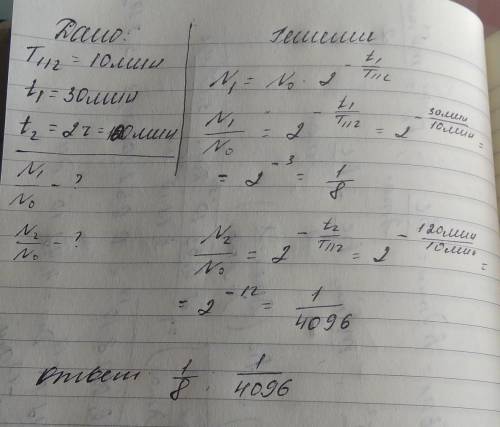 Дано:
T₁/₂ = 10мин
t₁ = 30мин
t₂ = 2ч = 120мин
N₁/N₀ - ?
N₂/N₀ = ?
Решение
N₁ = N₀ · 2^(-t₁/T₁/₂)
N₁/N₀ = 2^(-t₁/T₁/₂) = 2^(-30мин/10мин) =
= 2^(-3) = 1/8
N₂/N₀ = 2^(-t₂/T₁/₂) = 2^(-120мин/10мин) =
= 2^(-12) = 1/4096
ответ 1/8 . 1/4096